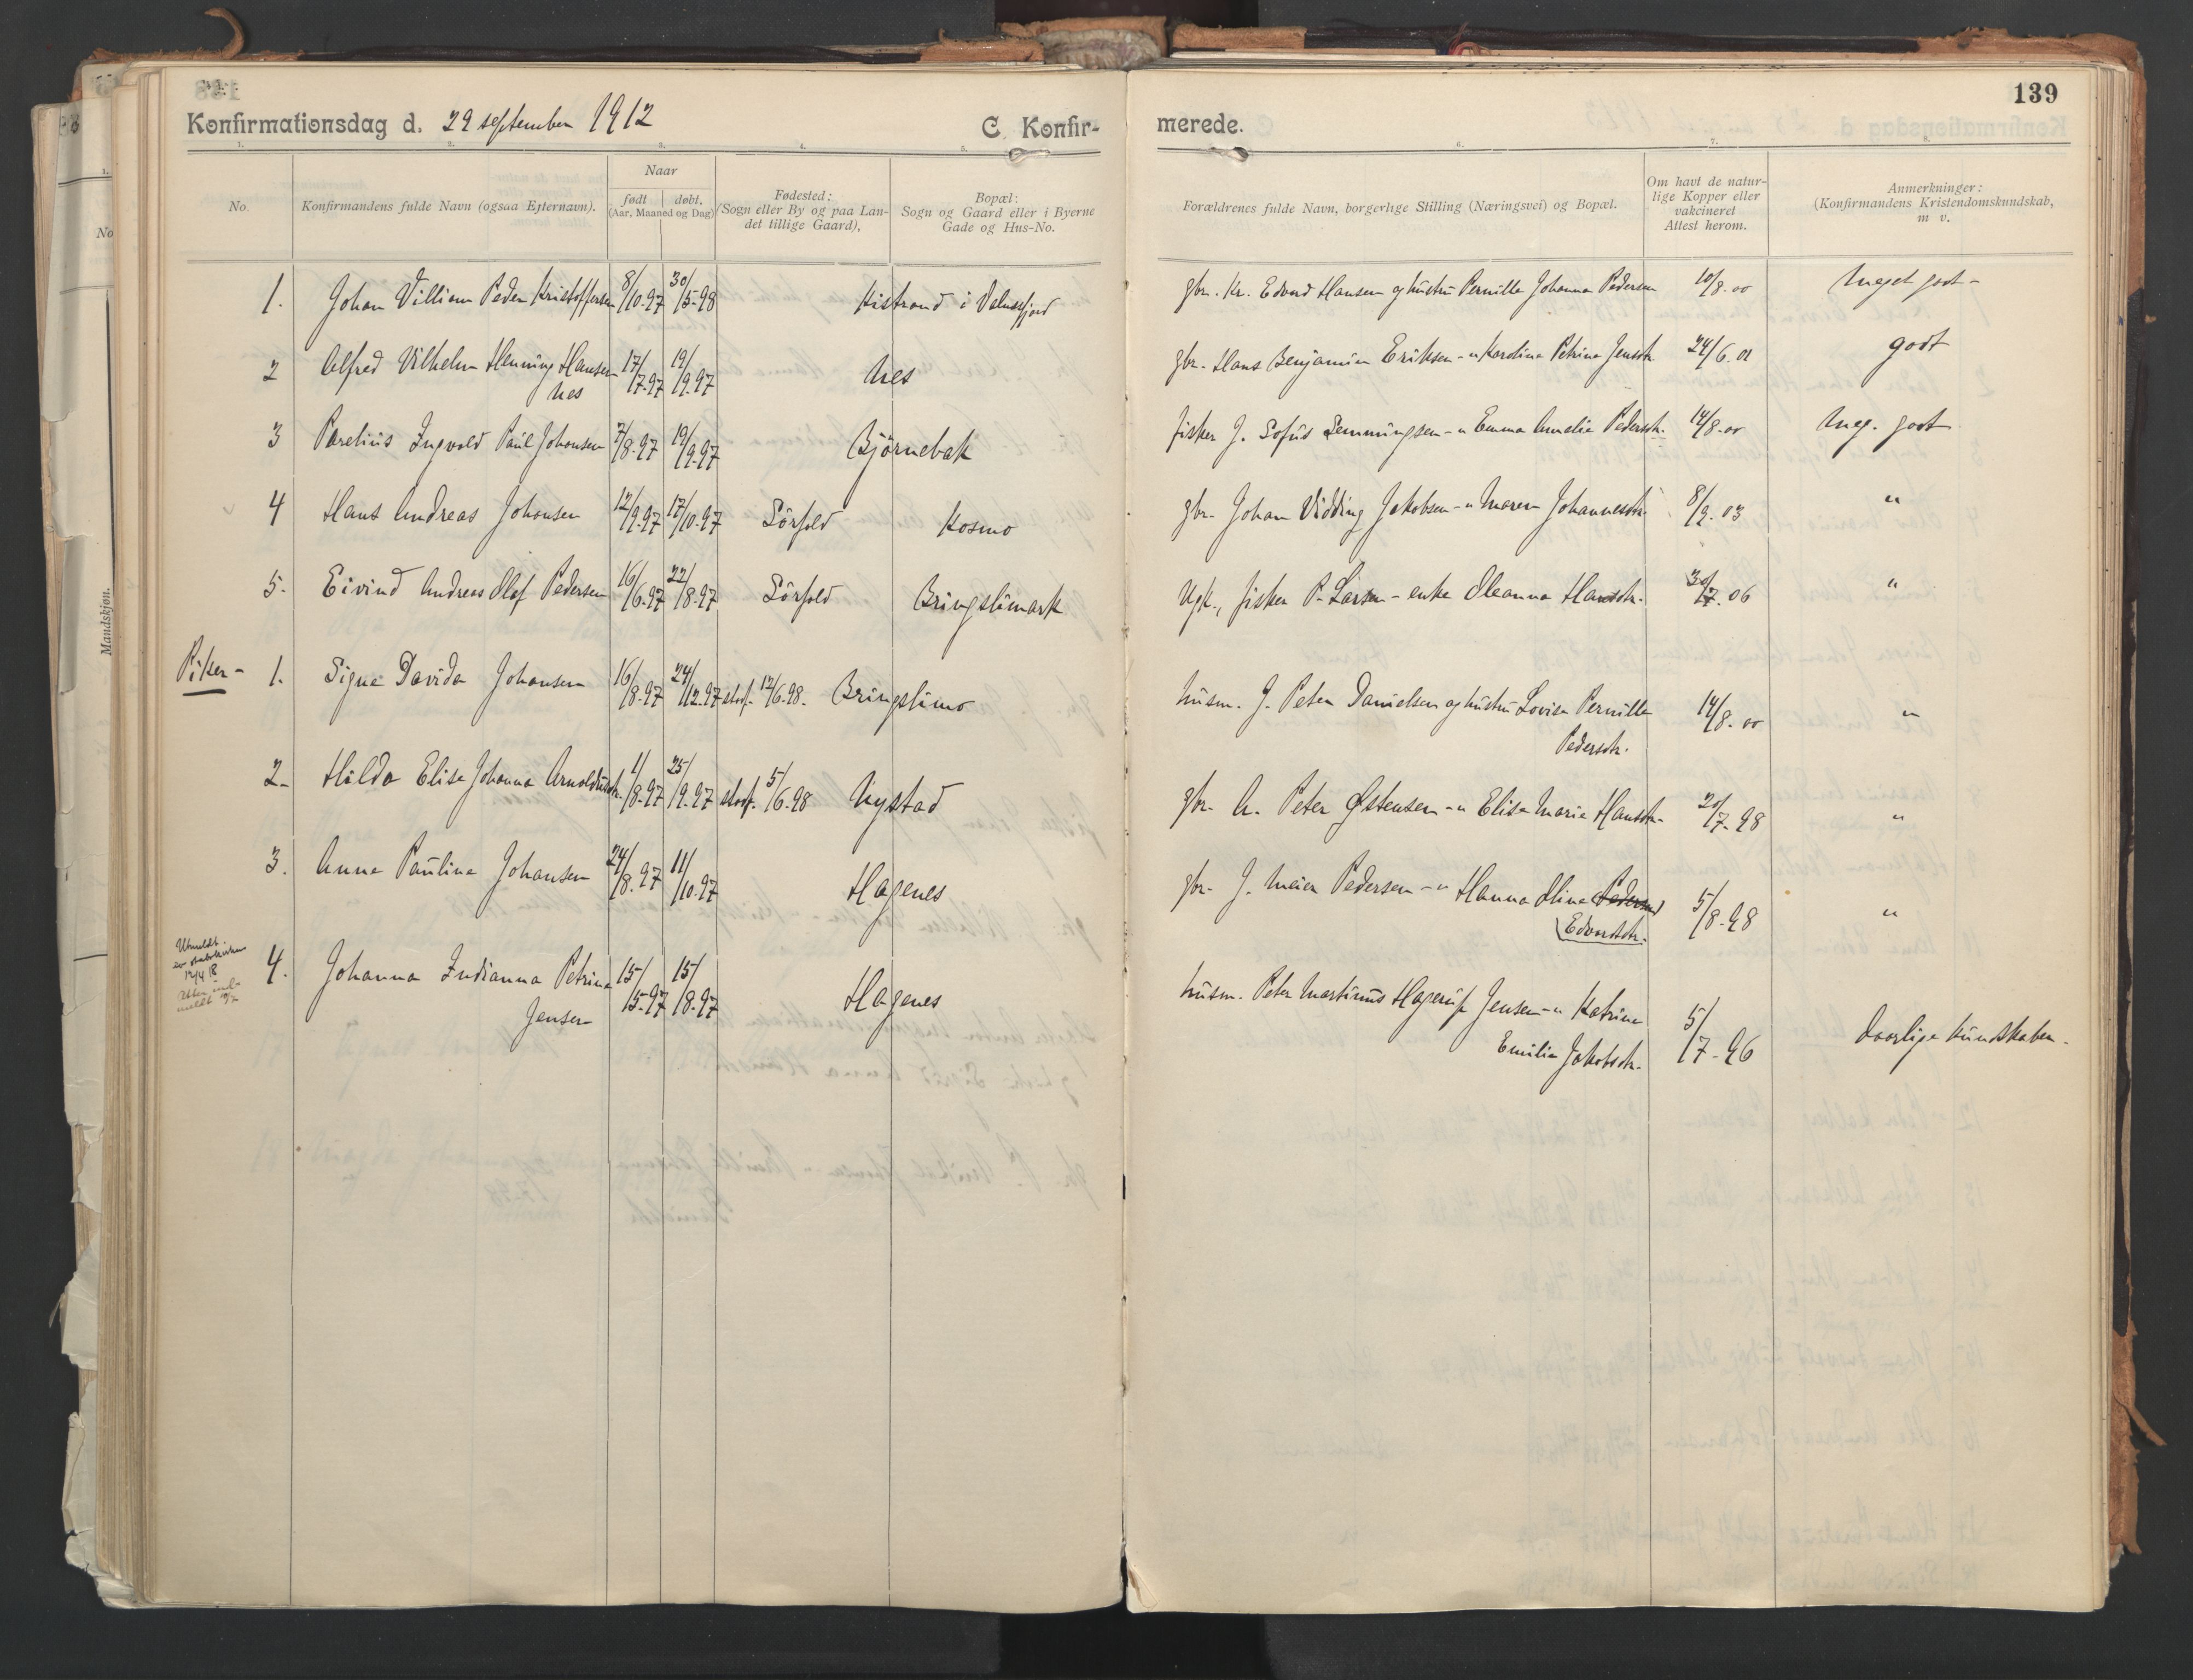 139
Konfirmationsdag d. 29 september 1912
C. Konfir-
merede.
1. 2. 3. 4. 5. 6. 7. 8.
No.
Konfirmandens fulde Navn (ogsaa Efternavn).
Naar
født
døbt,
(Aar, Maaned og Dag)
Fødested:
(Sogn eller By og paa Lan-
det tillige Gaard),
Bopæl:
Sogn og Gaard eller i Byerne
Gade og Hus-No.
Forældrenes fulde Navn, borgerlige Stilling (Næringsvei) og Bopæl.
Om havt de natur-
lige Kopper eller
vakcineret
Attest herom.
Anmerkninger:
(Konfirmandens Kristendomskundskab,
m v.
1. Johan Villiam Peder Kristoffersen 8/10-97 30/5-98 Kistrand i Valnesfjord gbr. Kr. Edvard Hansen og hustru Pernille Johanna Pedersen 10/8-00 Meget godt-
2 Alfred Vilhelm Henning Hansen 17/7-97 19/9-97 Nes gbr. Hans Benjamin Eriksen -"- Karoline Petrine Jensdtr. 24/6.01 godt
Nes
3 Parelius Ingvald Paul Johansen 7/8-97 19/9-97 Björnebak fisker J. Sofus Lemmingsen -"- Emma Amalie Pedersdtr. 14/8-00 Meg. godt
4 Hans Andreas Johansen 12/9-97 17/10-97 Sörfold Kosmo gbr. Johan Vidding Jakobsen -"- Maren Johannesdtr. 8/9.03 "
5. Eivind Andreas Olaf Pedersen 16/6-97 22/8-97 Sörfold Bringslimark Ugk., fisker P. Larsen - enke Oleanna Hansdtr. 30/7.06 "
Piker- 1. Signe Davida Johansen 16/8-97 24/12-97 stadf. 12/6-98. Bringslimo husm. J. Peter Danielsen og hustru Lovise Pernille 14/8-00 "
Pedersdtr.
2- Hilda Elise Johanna Arnoldusdtr. 1/8-97 25/9-97 stadf. 5/6-98 Nystad gbr. A. Peter Østensen -"- Elise Marie Hansdtr. 20/7-98 "
3. Anna Paulina Johansen 24/8.97 11/10-97 Hagenes gbr. J. Meier Pedersen -"- Hanna Oline Pedersen 5/8-98 "
Edvardsdtr.
Utmeldt
av statskirken
12/4 18
4. Johanna Indianna Petrina 15/5-97 15/8-97 Hagenes husm. Peter Martinus Hagerup Jensen -"- Katrine 5/7-96 Daarlige kundskaber.
Jensen
Emilie Jakobsdtr.
No
1.
Mandskjøn.